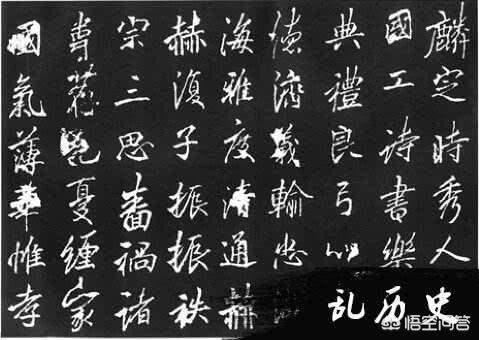 麟定時秀人
國工詩書樂
典禮良弓以
濟義輪忠
海雅度清通赫
赫復子振振袟
宗三思蕃禍諸
專憂纏家
國氣薄華惟孝
乱历史
悟空问答